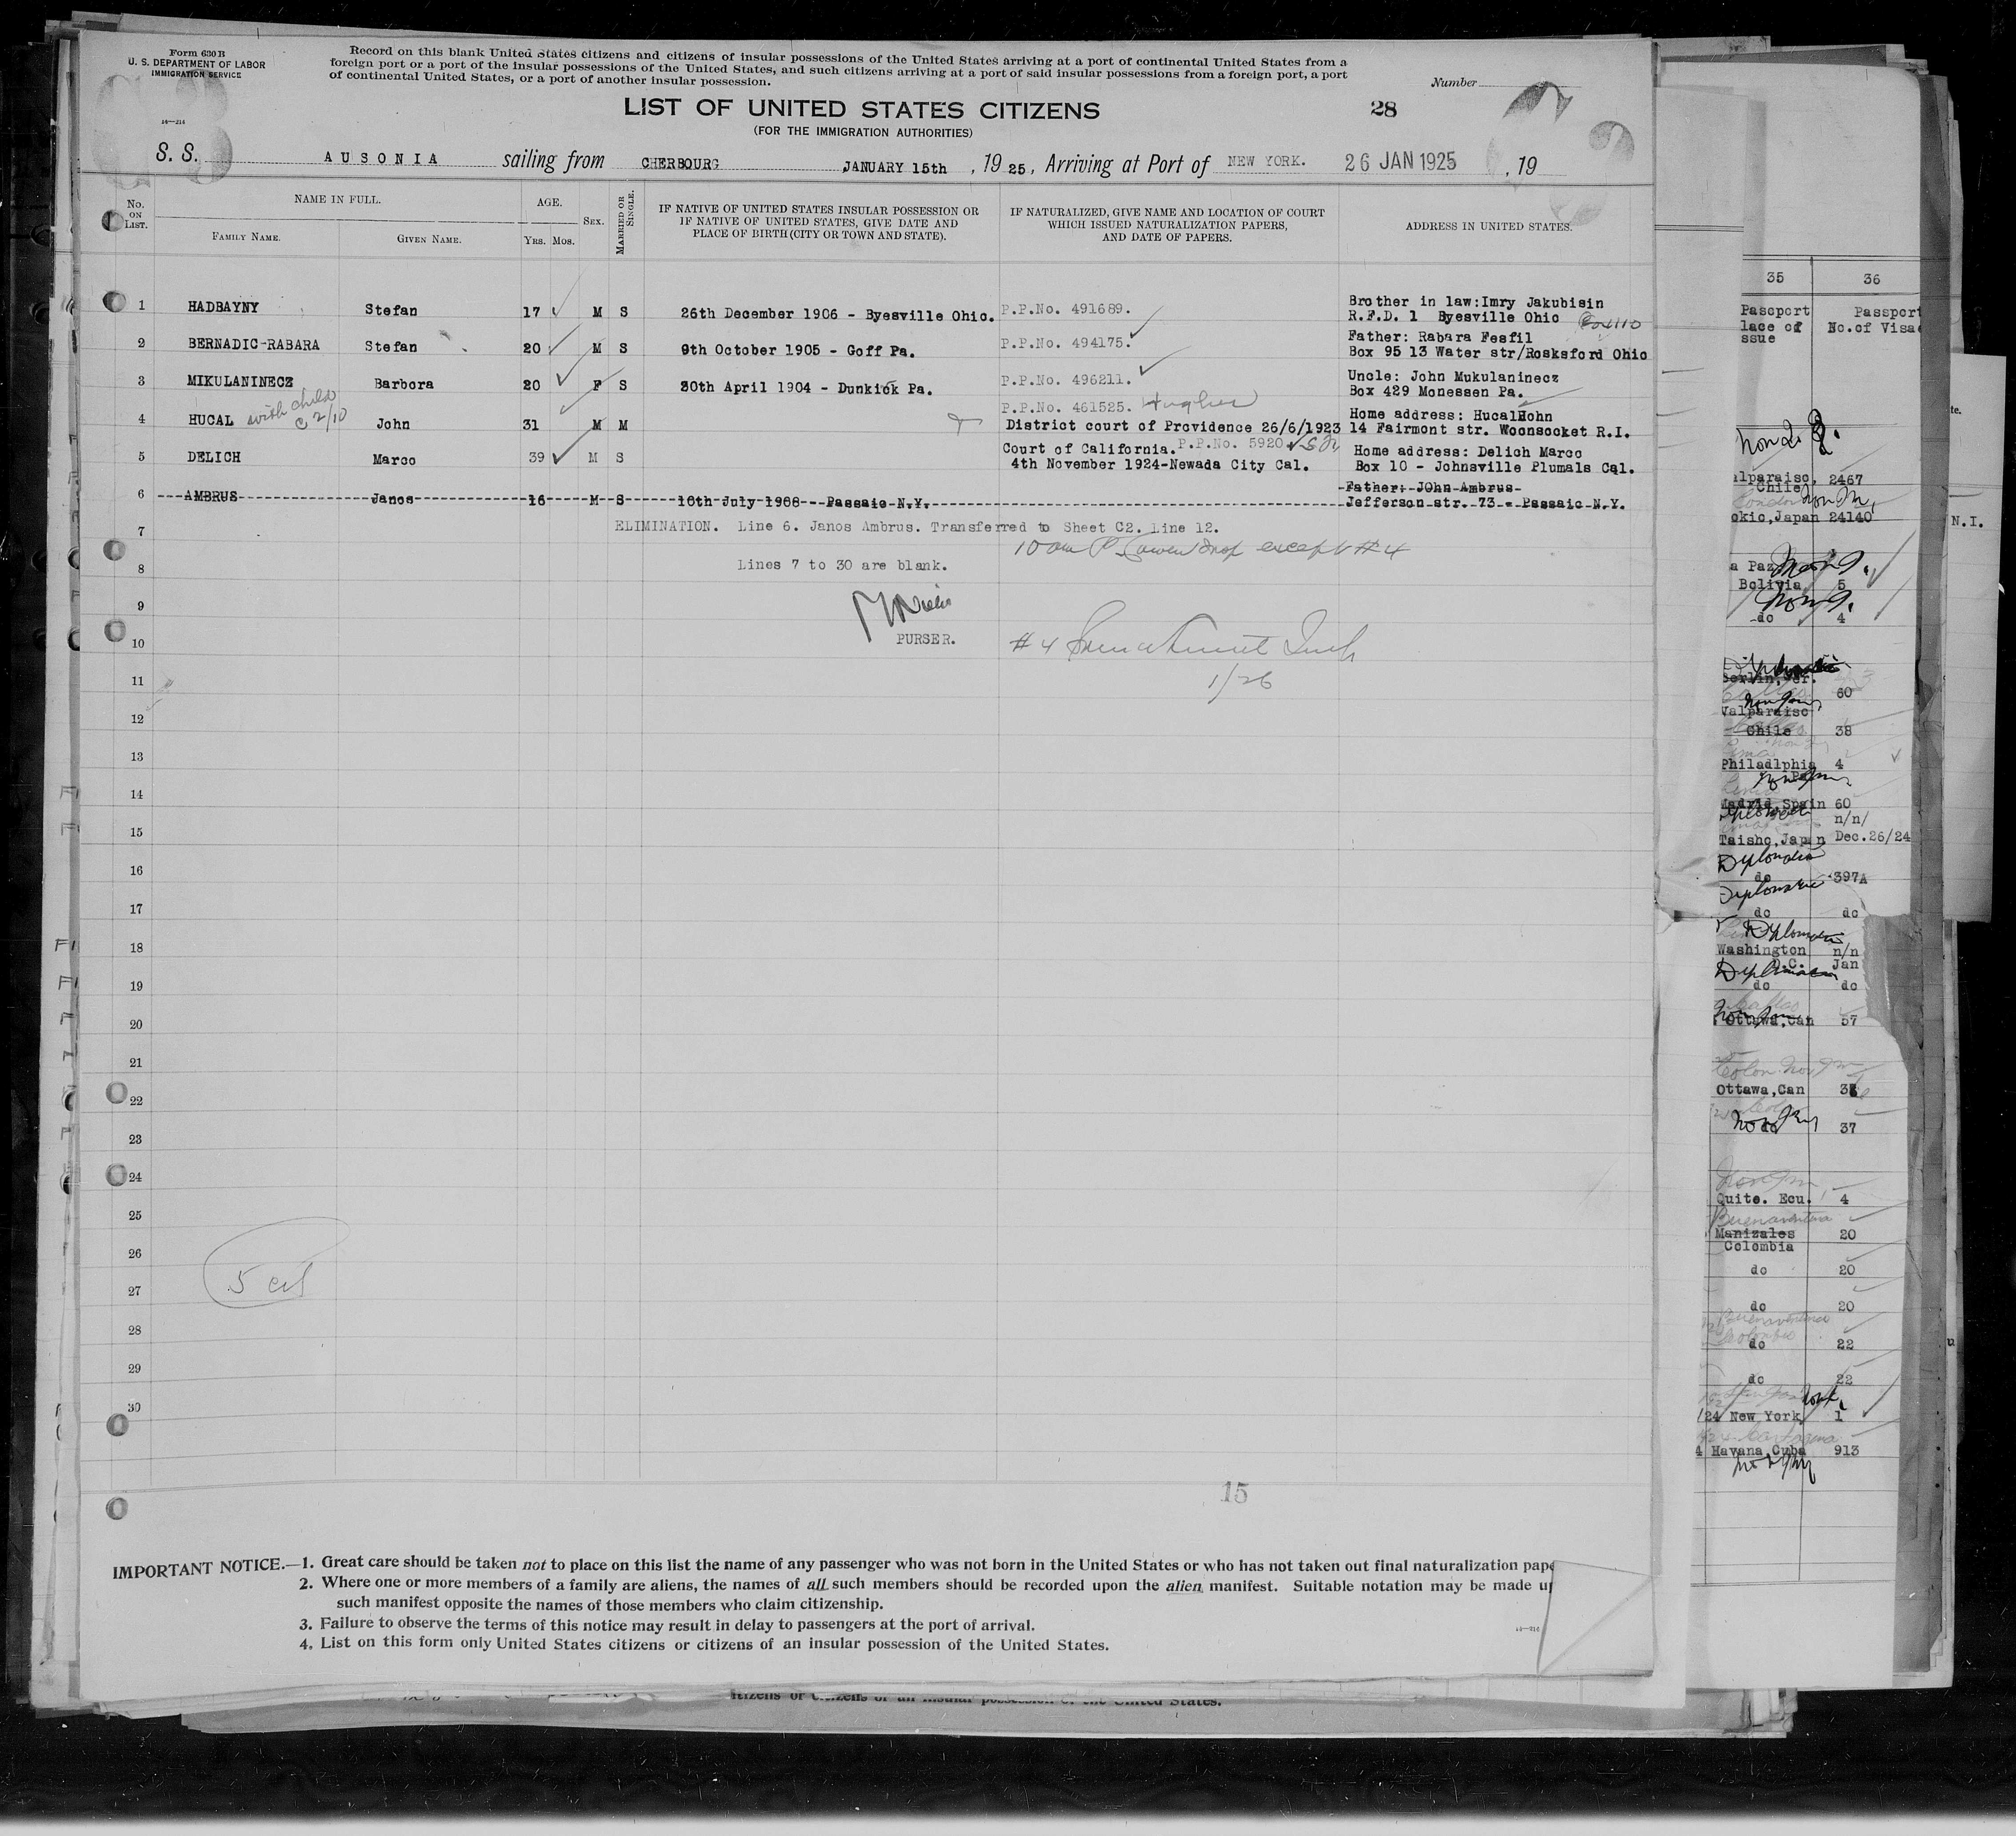 Form 630 B
U. S. DEPARTMENT OF LABOR
IMMIGRATION SERVICE
Record on this blank United States citizens and citizens of insular possessions of the United States arriving at a port of continental United States from a
foreign port or a port of the insular possessions of the United States, and such citizens arriving at a port of said insular possessions from a foreign port, a port
of continental United States, or a port of another insular possession.
Number
LIST OF UNITED STATES CITIZENS
28
(FOR THE IMMIGRATION AUTHORITIES)
S. S. AUSONIA sailing from CHERBOURG JANUARY 15th , 19 25 , Arriving at Port of NEW YORK. 26 JAN 1925 , 19
No. ON LIST.
NAME IN FULL.
FAMILY NAME.
GIVEN NAME.
AGE.
YRS. MOS.
SEX.
MARRIED OR SINGLE.
IF NATIVE OF UNITED STATES INSULAR POSSESSION OR
IF NATIVE OF UNITED STATES, GIVE DATE AND
PLACE OF BIRTH (CITY OR TOWN AND STATE).
IF NATURALIZED, GIVE NAME AND LOCATION OF COURT
WHICH ISSUED NATURALIZATION PAPERS,
AND DATE OF PAPERS.
ADDRESS IN UNITED STATES.
1 HADBAYNY Stefan 17 M S 26th December 1906 - Byesville Ohio. P.P.No. 491689. Brother in law:Imry Jakubisin
R.F.D. 1 Byesville Ohio Box 110
2 BERNADIC-RABARA Stefan 20 M S 9th October 1905 - Goff Pa. P.P.No. 494175. Father: Rabara Fesfil
Box 95 13 Water str/Rosksford Ohio
3 MIKULANINECZ Barbora 20 F S 30th April 1904 - Dunkick Pa. P.P.No. 496211. Uncle: John Mukulaninecz
Box 429 Monessen Pa.
with child
C 2/10
P.P.No. 461525. Hughes
4 HUCAL John 31 M M District court of Providence 26/6/1923 Home address: HucalHohn
14 Fairmont str. Woonsocket R.I.
5 DELICH Marco 39 M S Court of California. P.P.No. 5920.
4th November 1924-Newada City Cal.
Home address: Delich Marco
Box 10 - Johnsville Plumals Cal.
6 AMBRUS Janos 16 M S 10th July 1908 - Passaic N.Y. Father: John Ambrus
Jefferson str. 73 - Passaic N.Y.
7 ELIMINATION. Line 6. Janos Ambrus. Transferred to Sheet C2. Line 12.
except #4
8 Lines 7 to 30 are blank.
9
PURSER.
10
#4
1/26
11
12
13
14
15
16
17
18
19
20
21
22
23
24
25
26
27
28
29
30
5
15
IMPORTANT NOTICE.—1. Great care should be taken not to place on this list the name of any passenger who was not born in the United States or who has not taken out final naturalization pape
2. Where one or more members of a family are aliens, the names of all such members should be recorded upon the alien manifest. Suitable notation may be made up
such manifest opposite the names of those members who claim citizenship.
3. Failure to observe the terms of this notice may result in delay to passengers at the port of arrival.
4. List on this form only United States citizens or citizens of an insular possession of the United States.
itizens or citizens of an insular possession of the United States.
35 36
Passport Passport
lace of No.of Visa
ssue
alparaiso, 2467
Chile
okio,Japan 24140
N.I.
a Paz
Bolivia 5
do 4
Berlin,Ger.
60
Valparaiso
Chile 38
Philadlphia 4
Pa
Madrid,Spain 60
n/n/
Taisho,Japan Dec.26/24
Diplomatic
do 397A
Diplomatic
do do
Diplomatic
Washington n/n
D.C. Jan
Diplomatic
do do
Ottawa,Can 57
Colon
Ottawa,Can
do 37
Quito. Ecu. 4
Buenaventura
Manizales 20
Colombia
do 20
do 20
Buenaventura
Colombia
do 22
do 22
/24 New York 1
Cartagena
4 Havana,Cuba 913